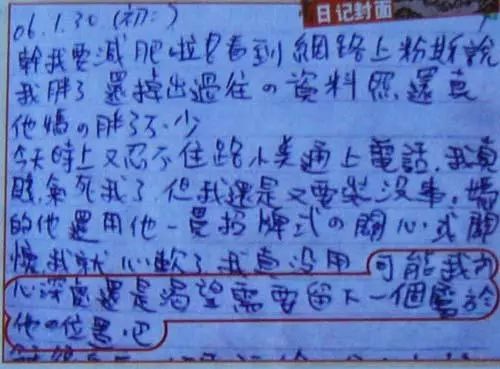 日记封面
06.1.30(初二)
幹我要減肥啦!看到網路上粉斯說
我胖了 還捧出過往の資料照,還真
他媽の胖了不少
今天晚上又忍不住路小美通上電話,我真
氣死我了 但我還是又要裝沒事,媽
的他還用他一貫招牌式の關心或關
懷我就心軟了 我真没用 可能我內
心深處還是渴望需要留下一個屬於
他の位置吧